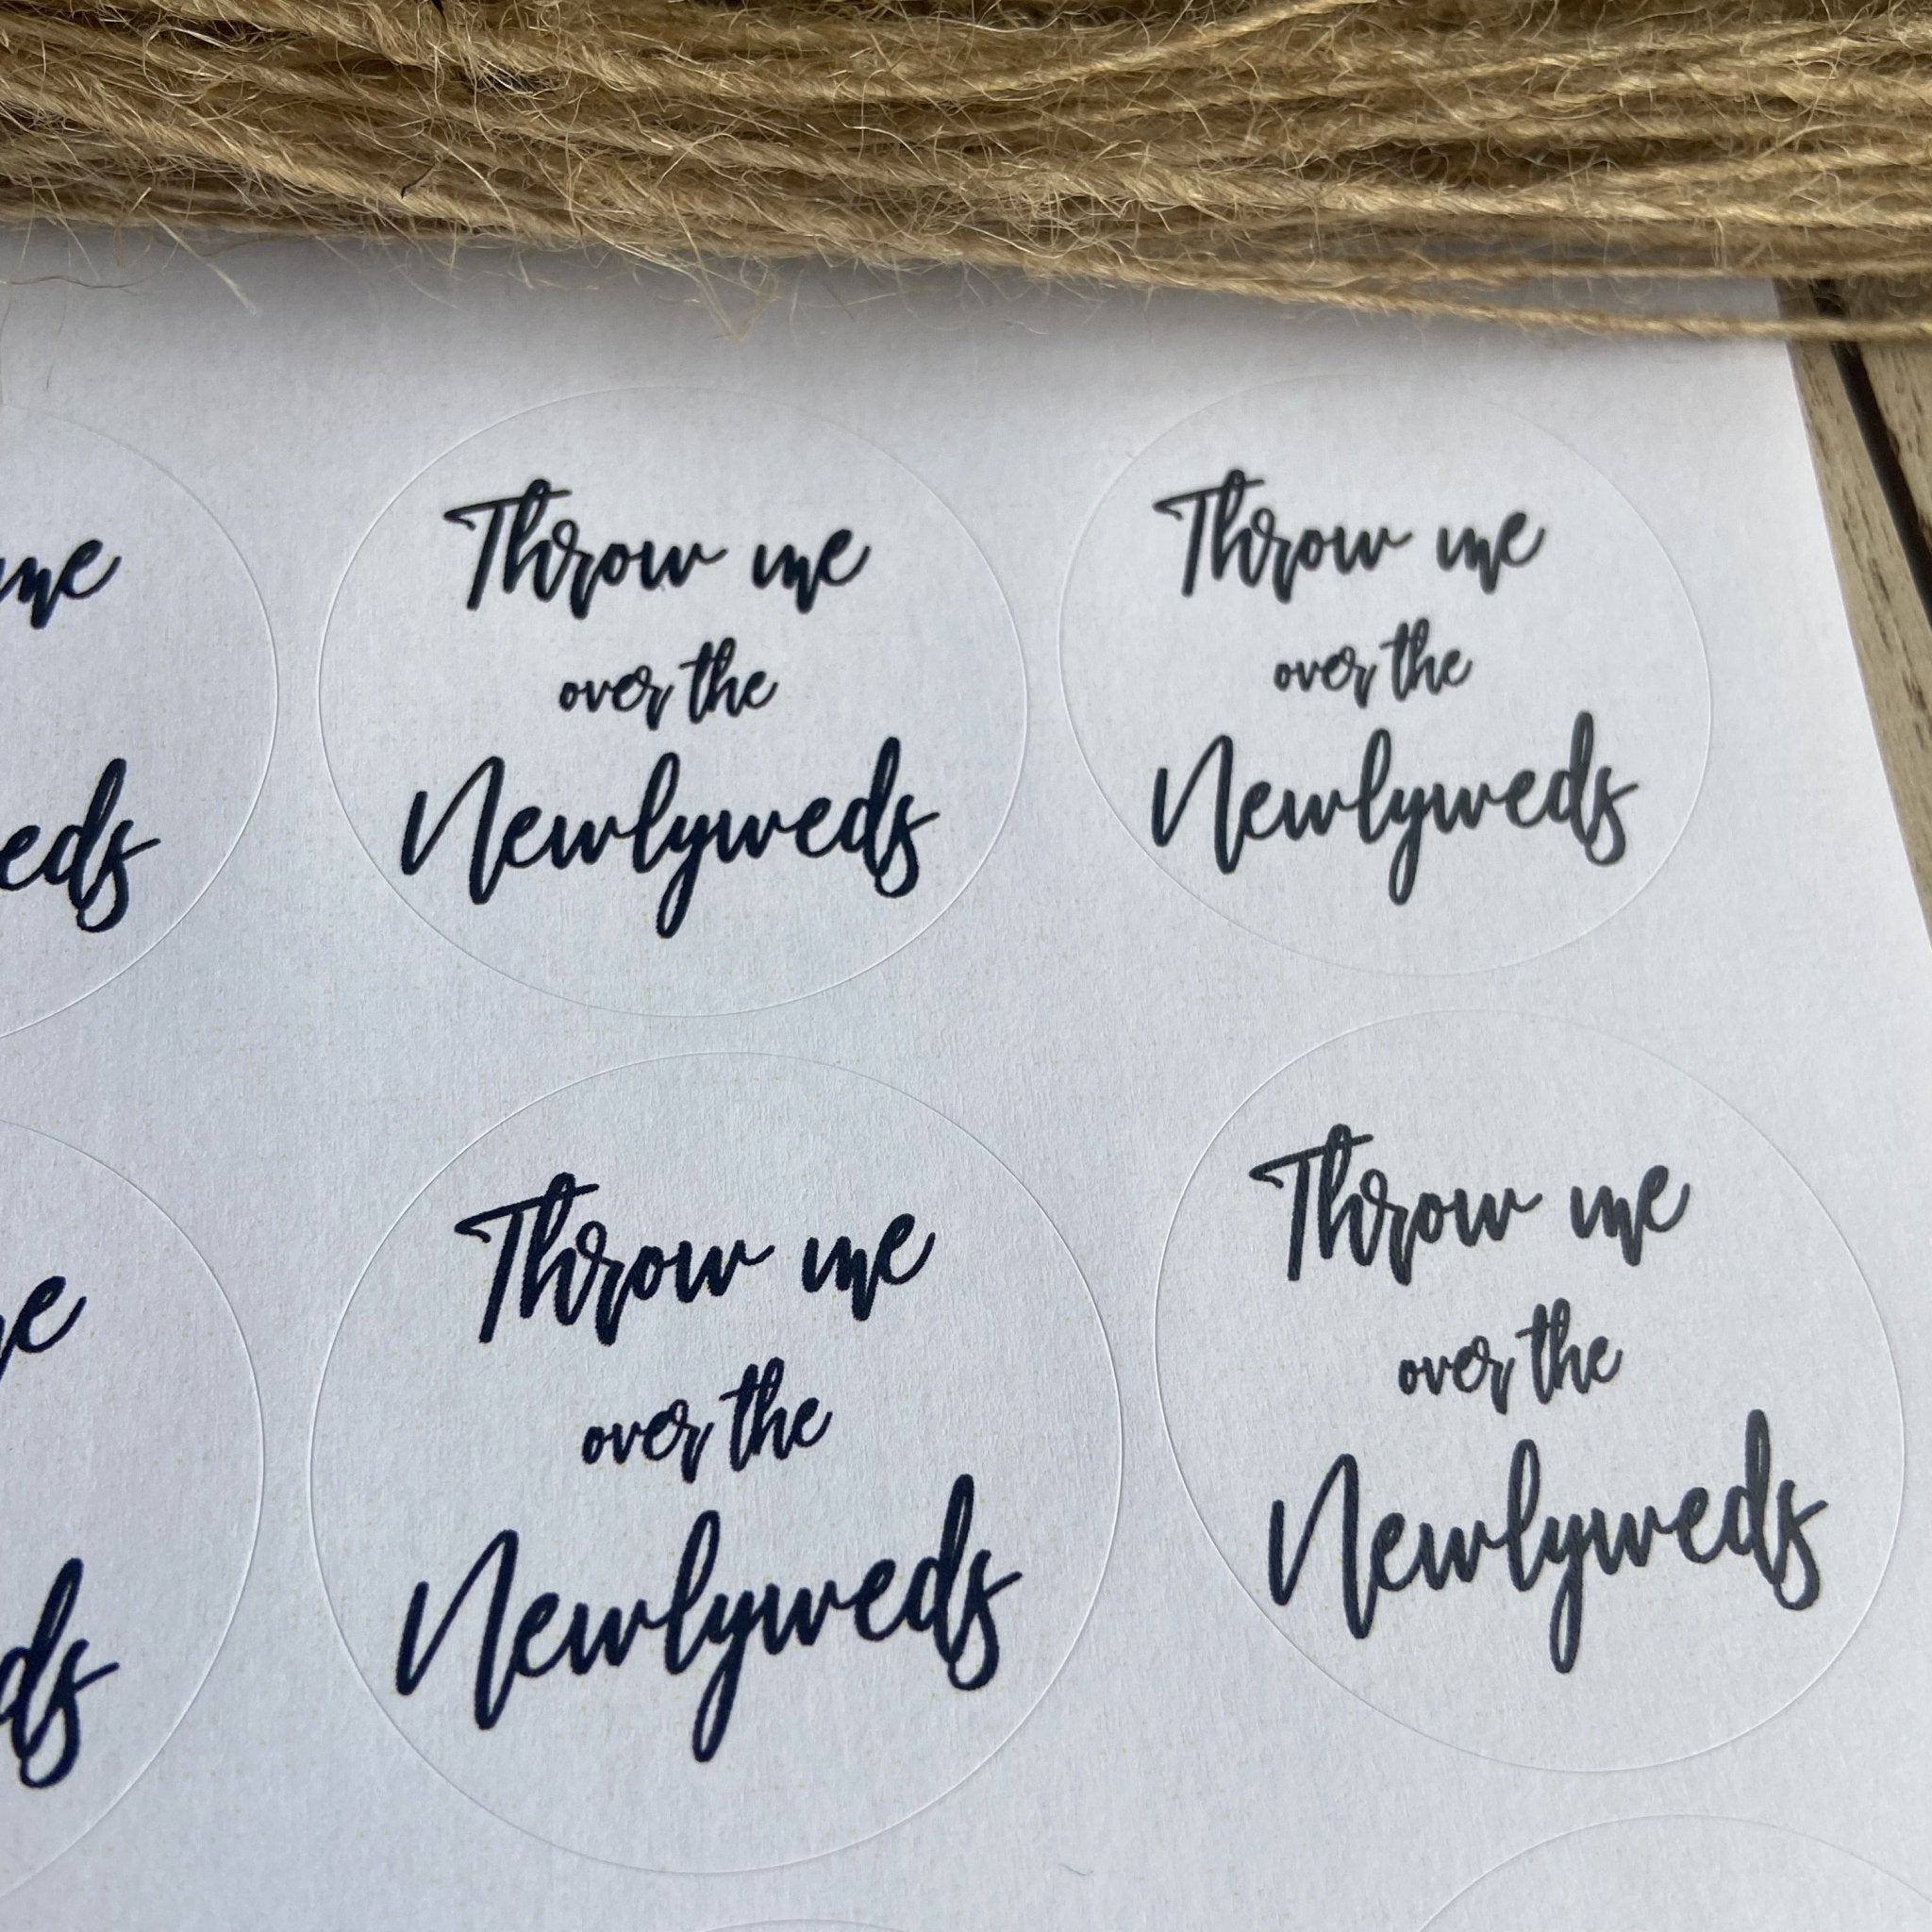 me
Throw me
over the
Newlyweds
Throw me
over the
Newlyweds
eds
Throw me
over the
Newlyweds
Throw me
over the
Newlyweds
e
ds